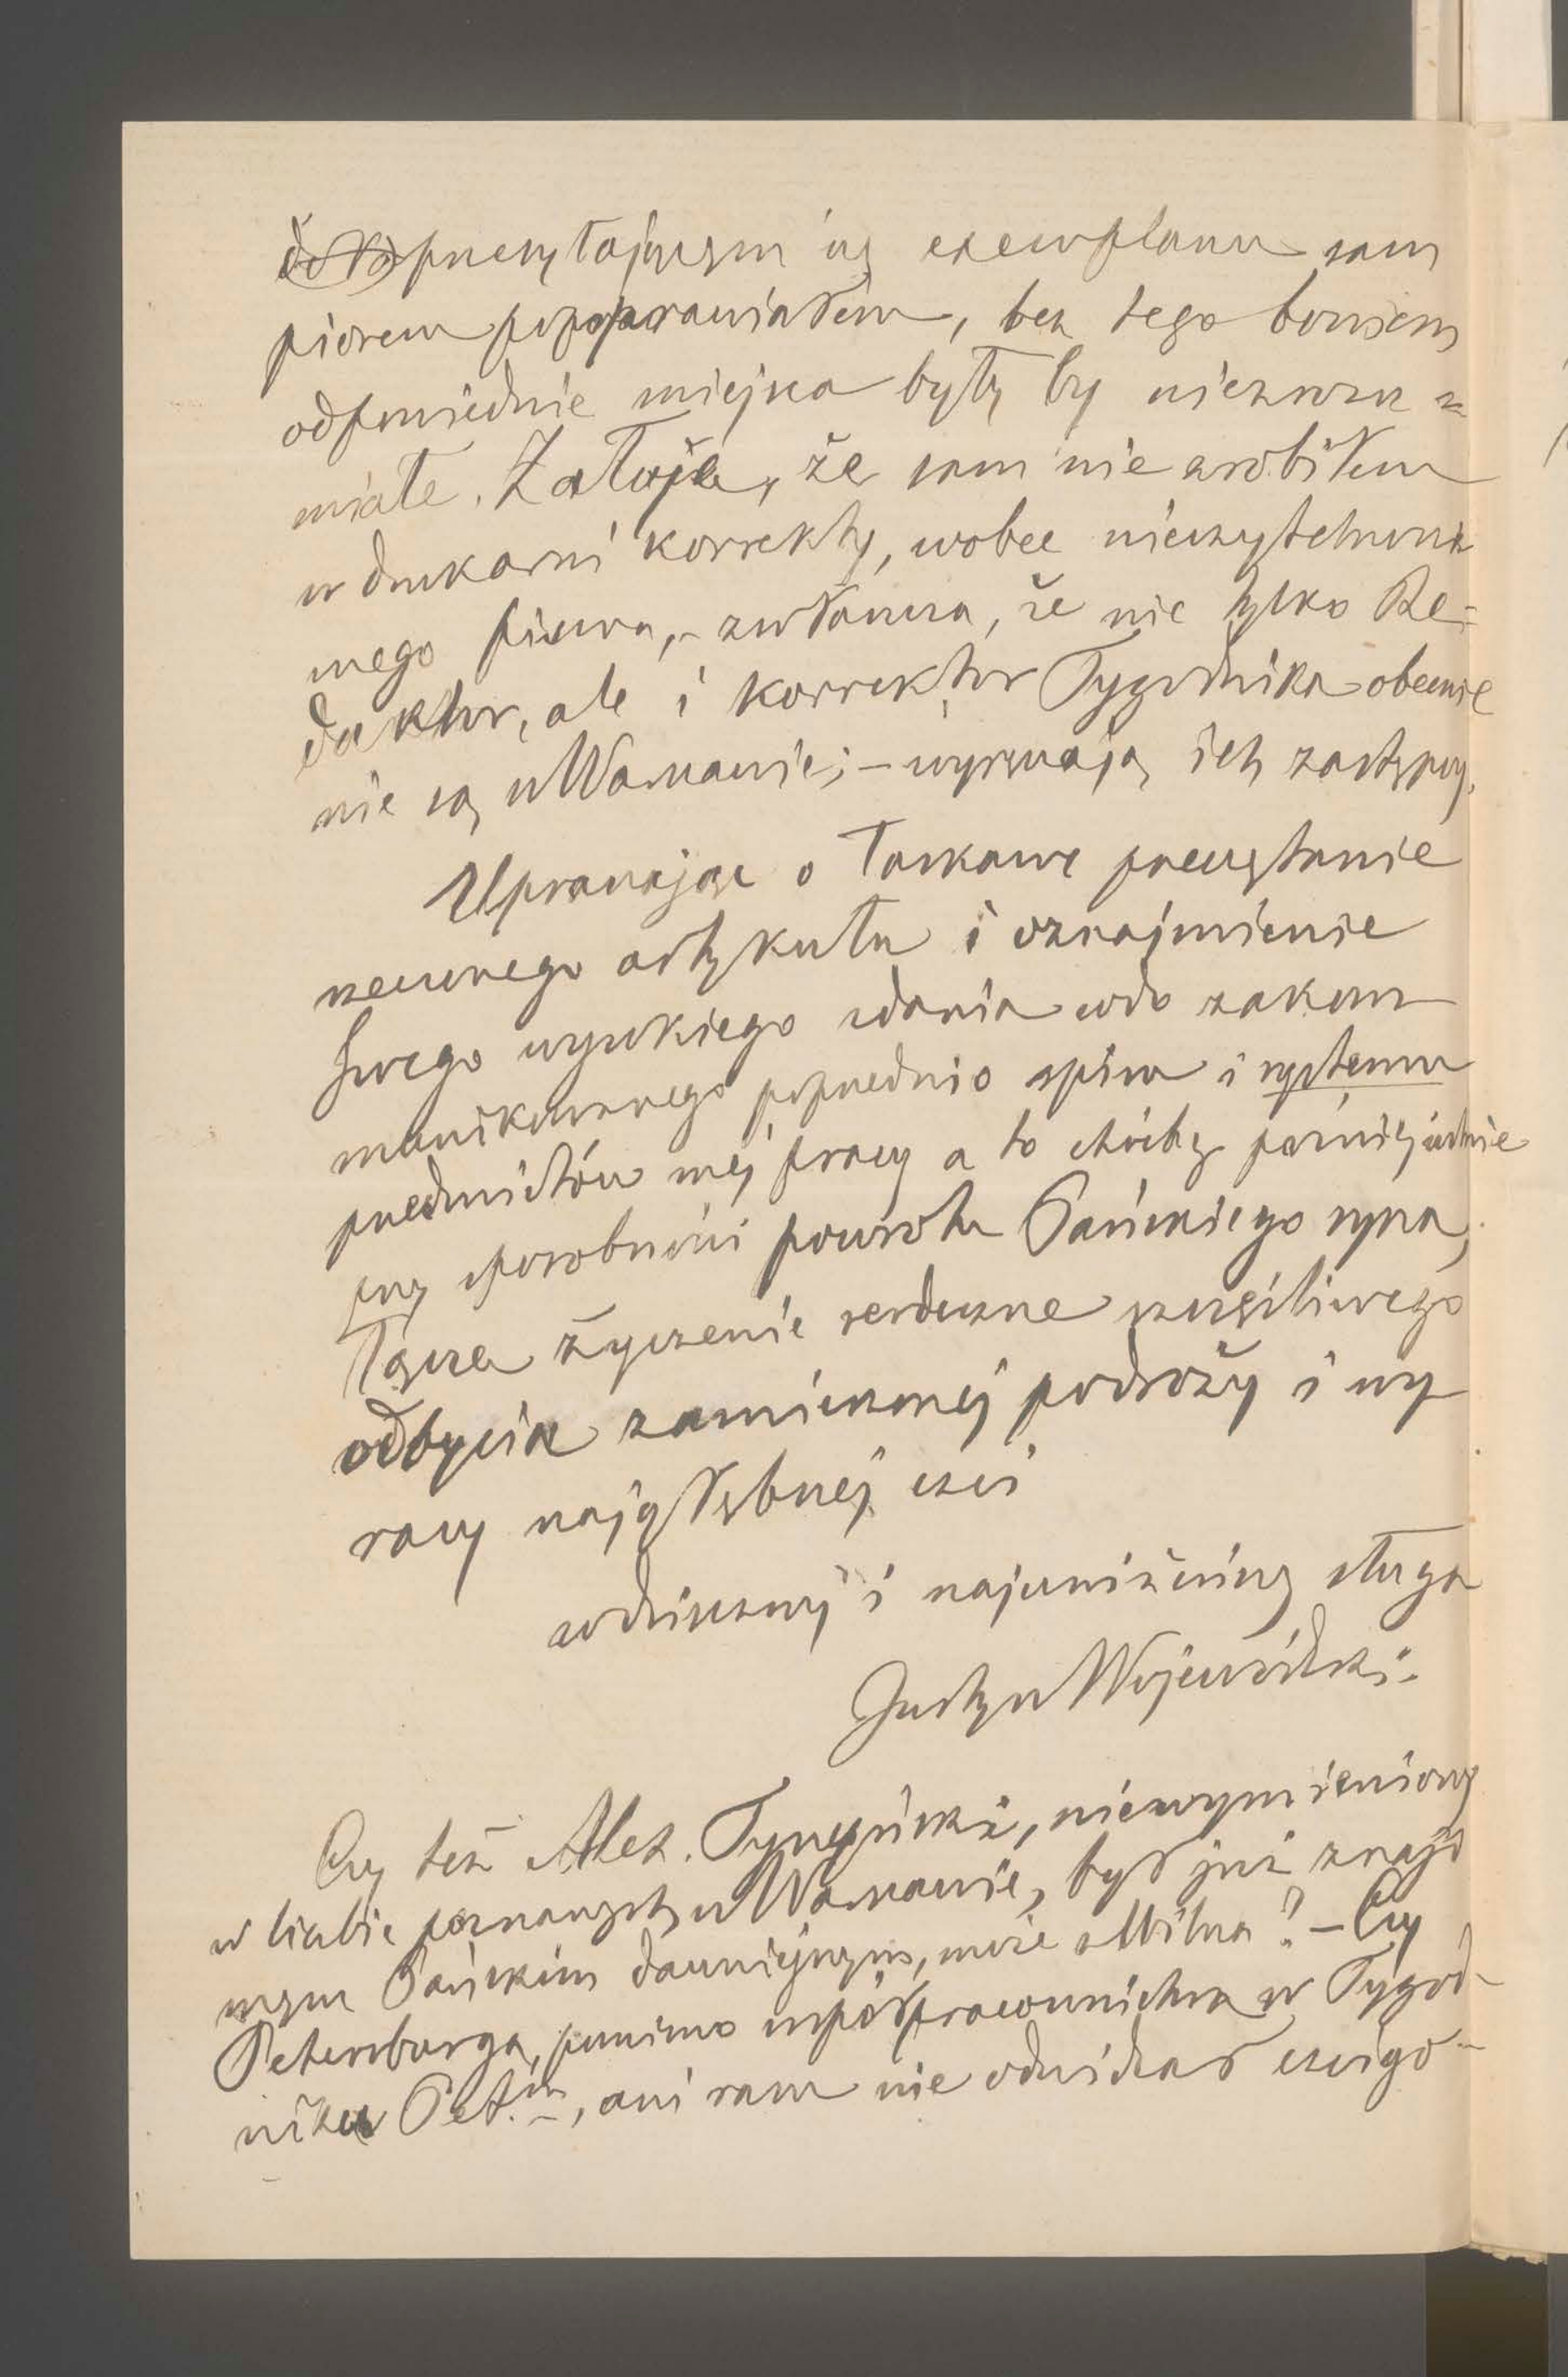 przesyłającym się exemplarzu sam
piórem popoprawiałem, bez tego bowiem
odpowiednie miejsca były by niezrozu
miałe. Żałuję, że sam nie zrobiłem
w drukarni korrekty, wobec nieczytelności
mego pisma, - zwłaszcza, że nie tylko Re-
daktor, ale i korrektor Tygodnika obecnie
nie są w Warszawie; - wyręczają ich zastępcy.
Upraszając o łaskawe przeczytanie
rzeczonego artykułu i oznajmienie
Swego wysokiego zdania co do zakom
munikowanego poprzednio spisu i systemu
przedmiotów mej pracy a to choćby później
przy sposobności powrotu Pańskiego syna,
łączę życzenie serdeczne szczęśliwego
odbycia zamierzonej podróży i wy
razy najgłębszej czci
wdzięczny i najuniżeńszy sługa
Justyn Wojewódzki.
Czy też Alex. Tyszyński, niewymieniony
w liczbie poznanych w Warszawie, był już znajo
mym Pańskim dawniejszym, może z Wilna? - Czy
Petersburga, pomimo współpracownictwa w Tygod-
niku Pet.m, ani razu nie odwidzał czcigo-